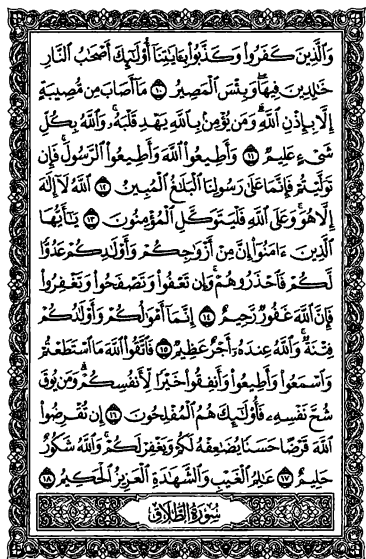 وَالَّذِينَ كَفَرُوا وَكَذَّبُوا بِـَٔايَـٰتِنَآ أُولَـٰٓئِكَ أَصْحَـٰبُ النَّارِ
خَـٰلِدِينَ فِيهَا ۖ وَبِئْسَ الْمَصِيرُ ١٠ مَآ أَصَابَ مِن مُّصِيبَةٍ
إِلَّا بِإِذْنِ اللَّهِ ۗ وَمَن يُؤْمِنۢ بِاللَّهِ يَهْدِ قَلْبَهُۥ ۚ وَاللَّهُ بِكُلِّ
شَىْءٍ عَلِيمٌ ١١ وَأَطِيعُوا اللَّهَ وَأَطِيعُوا الرَّسُولَ ۚ فَإِن
تَوَلَّيْتُمْ فَإِنَّمَا عَلَىٰ رَسُولِنَا الْبَلَـٰغُ الْمُبِينُ ١٢ اللَّهُ لَآ إِلَـٰهَ
إِلَّا هُوَ ۚ وَعَلَى اللَّهِ فَلْيَتَوَكَّلِ الْمُؤْمِنُونَ ١٣ يَـٰٓأَيُّهَا
الَّذِينَ ءَامَنُوٓا إِنَّ مِنْ أَزْوَٰجِكُمْ وَأَوْلَـٰدِكُمْ عَدُوًّا
لَّكُمْ فَاحْذَرُوهُمْ ۚ وَإِن تَعْفُوا وَتَصْفَحُوا وَتَغْفِرُوا
فَإِنَّ اللَّهَ غَفُورٌ رَّحِيمٌ ١٤ إِنَّمَآ أَمْوَٰلُكُمْ وَأَوْلَـٰدُكُمْ
فِتْنَةٌ ۚ وَاللَّهُ عِندَهُۥٓ أَجْرٌ عَظِيمٌ ١٥ فَاتَّقُوا اللَّهَ مَا اسْتَطَعْتُمْ
وَاسْمَعُوا وَأَطِيعُوا وَأَنفِقُوا خَيْرًا لِّأَنفُسِكُمْ ۗ وَمَن يُوقَ
شُحَّ نَفْسِهِۦ فَأُولَـٰٓئِكَ هُمُ الْمُفْلِحُونَ ١٦ إِن تُقْرِضُوا
اللَّهَ قَرْضًا حَسَنًا يُضَـٰعِفْهُ لَكُمْ وَيَغْفِرْ لَكُمْ ۚ وَاللَّهُ شَكُورٌ
حَلِيمٌ ١٧ عَـٰلِمُ الْغَيْبِ وَالشَّهَـٰدَةِ الْعَزِيزُ الْحَكِيمُ ١٨
سُورَةُ الطَّلَاقِ